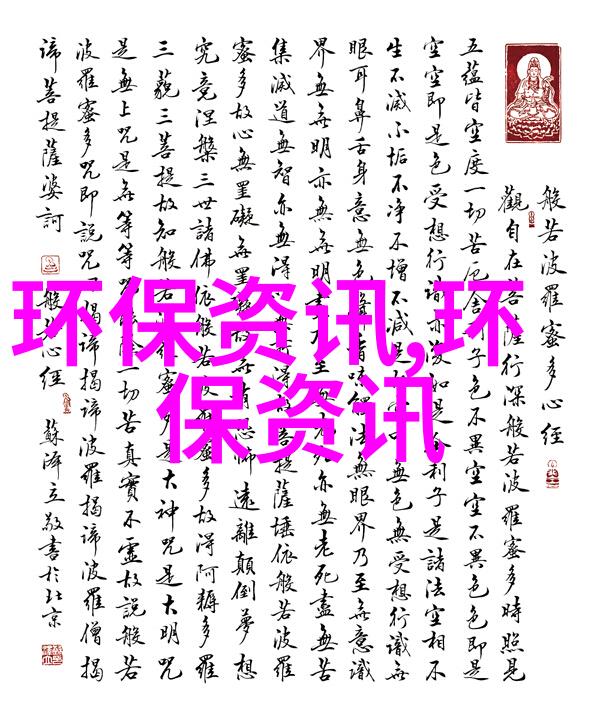 般若波羅蜜多心經
觀自在菩薩行深般若波羅蜜多時照見
五蘊皆空度一切苦厄舍利子色不異空空不異色色即是
空空即是色受想行識亦復如是舍利子是諸法空相不
生不滅不垢不净不增不減是無色無受想行識無
眼耳鼻舌身意無色香味法無眼界乃至無意識
界無無明亦無無明盡乃至死亦無老死盡無苦
集滅道無智亦無得無所得故菩提薩埵依般若波羅
蜜多故心無罣礙無罣故無有恐怖遠離顛倒夢想
究竟涅槃三世諸佛依般若波羅蜜多故得阿耨多羅
三藐三菩提故知般若波羅蜜多是大神咒是大明咒
是無上咒是無等等咒能除一切苦真實不虛故説般若
波羅蜜多咒即説咒曰揭諦揭諦波羅揭諦波羅僧揭
諦菩提薩婆訶 般若心經 蘇澤立敬書於北京
环保资讯,环
保资讯